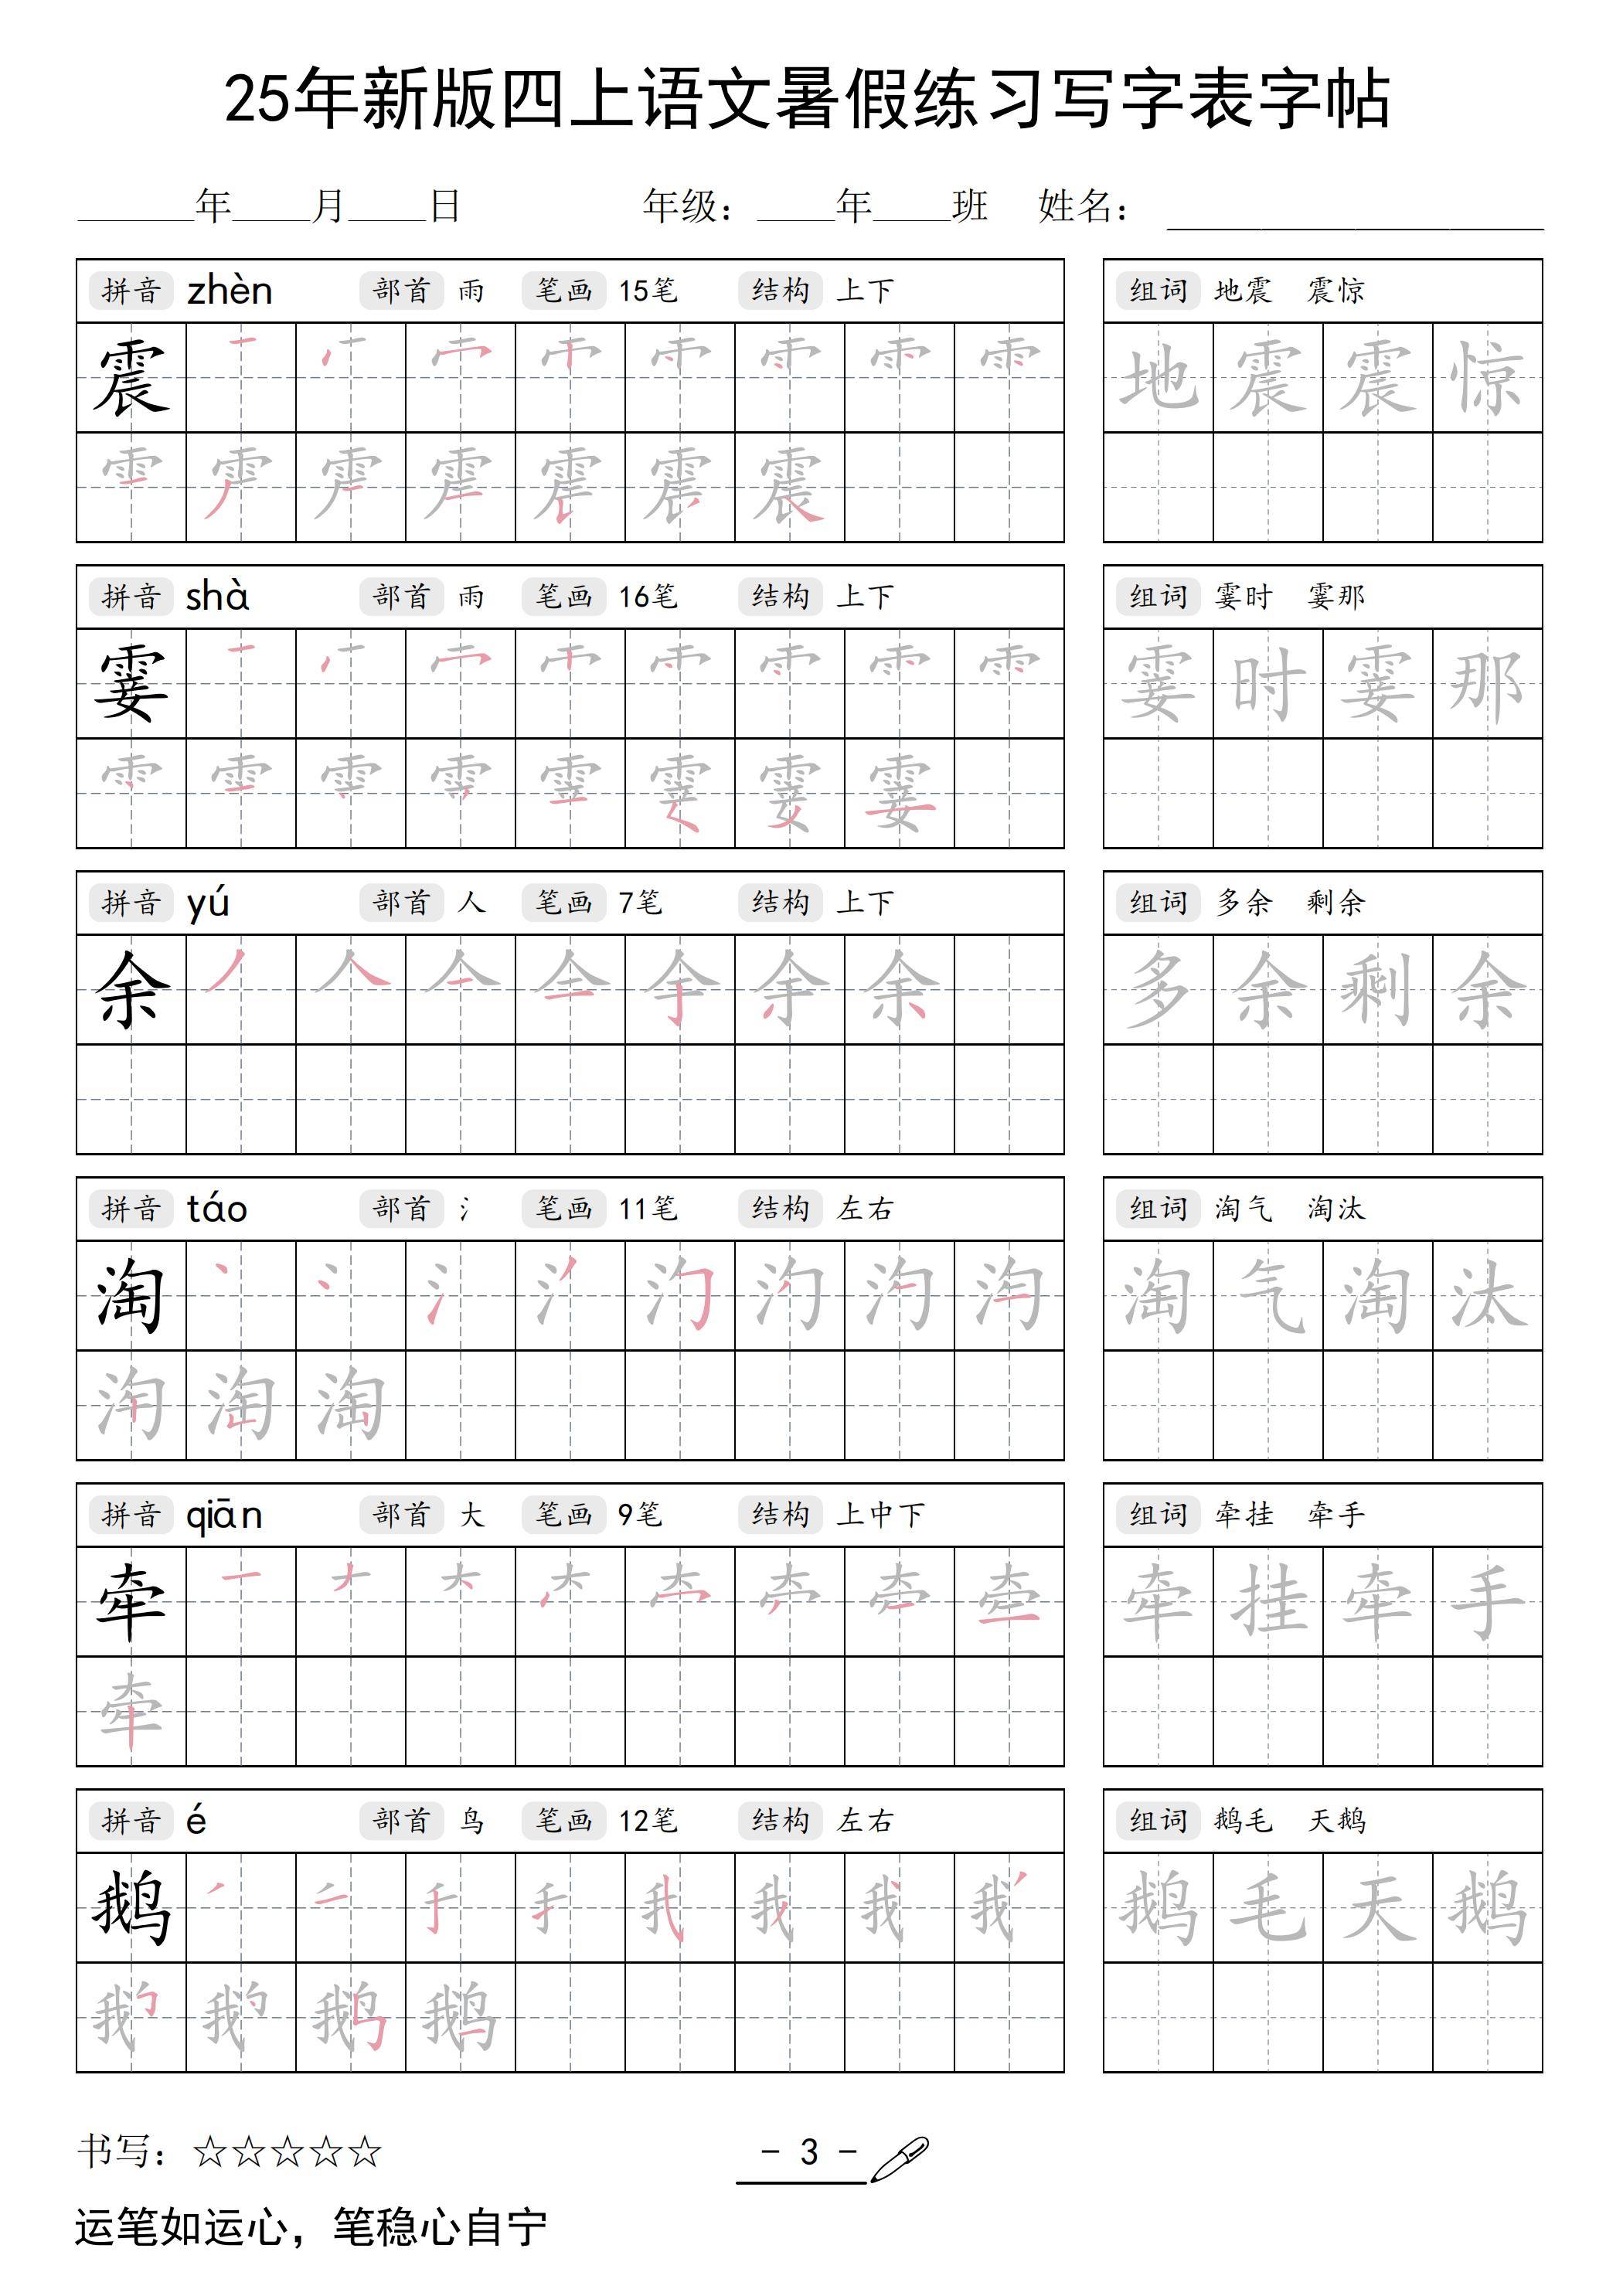 25年新版四上语文暑假练习写字表字帖
______年____月____日 年级：____年____班 姓名：________________
拼音 zhèn 部首 雨 笔画 15笔 结构 上下
组词 地震 震惊
震
地震震惊
拼音 shà 部首 雨 笔画 16笔 结构 上下
组词 霎时 霎那
霎
霎时霎那
拼音 yú 部首 人 笔画 7笔 结构 上下
组词 多余 剩余
余
多余剩余
拼音 táo 部首 氵 笔画 11笔 结构 左右
组词 淘气 淘汰
淘
淘气淘汰
拼音 qiān 部首 大 笔画 9笔 结构 上中下
组词 牵挂 牵手
牵
牵挂牵手
拼音 é 部首 鸟 笔画 12笔 结构 左右
组词 鹅毛 天鹅
鹅
鹅毛天鹅
书写：☆☆☆☆☆
- 3 -
运笔如运心，笔稳心自宁